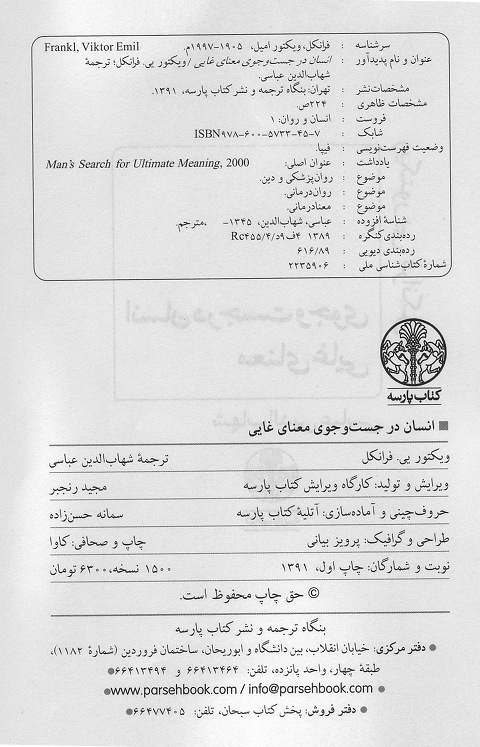 سرشناسه : فرانکل، ویکتور امیل، ۱۹۰۵-۱۹۹۷م. Frankl, Viktor Emil
عنوان و نام پدیدآور : انسان در جست‌وجوی معنای غایی / ویکتور یی. فرانکل؛ ترجمهٔ
شهاب‌الدین عباسی.
مشخصات نشر : تهران: بنگاه ترجمه و نشر کتاب پارسه، ۱۳۹۱.
مشخصات ظاهری : ۲۲۴ص.
فروست : انسان و روان: ۱
شابک : ISBN۹۷۸-۶۰۰-۵۷۳۳-۴۵-۷
وضعیت فهرست‌نویسی : فیپا.
یادداشت : عنوان اصلی: Man's Search for Ultimate Meaning, 2000
موضوع : روان‌پزشکی و دین.
موضوع : روان‌درمانی.
موضوع : معنادرمانی.
شناسهٔ افزوده : عباسی، شهاب‌الدین، ۱۳۴۵- ،مترجم.
رده‌بندی کنگره : ۱۳۸۹ ۴ف۹د/۴/Rc۴۵۵
رده‌بندی دیویی : ۶۱۶/۸۹
شمارهٔ کتاب‌شناسی ملی : ۲۲۳۵۹۰۶
کتاب پارسه
■ انسان در جست‌وجوی معنای غایی
ویکتور یی. فرانکل ترجمهٔ شهاب‌الدین عباسی
ویرایش و تولید: کارگاه ویرایش کتاب پارسه مجید رنجبر
حروف‌چینی و آماده‌سازی: آتلیهٔ کتاب پارسه سمانه حسن‌زاده
طراحی و گرافیک: پرویز بیانی چاپ و صحافی: کاوا
نوبت و شمارگان: چاپ اول، ۱۳۹۱ ۱۵۰۰ نسخه، ۶۳۰۰ تومان
© حق چاپ محفوظ است.
بنگاه ترجمه و نشر کتاب پارسه
● دفتر مرکزی: خیابان انقلاب، بین دانشگاه و ابوریحان، ساختمان فروردین (شمارهٔ ۱۱۸۲)،
طبقهٔ چهار، واحد پانزده، تلفن: ۶۶۴۱۳۴۶۴ و ۶۶۴۱۳۴۹۴●
●www.parsehbook.com / info@parsehbook.com●
● دفتر فروش: پخش کتاب سبحان، تلفن: ۶۶۴۷۷۴۰۵●